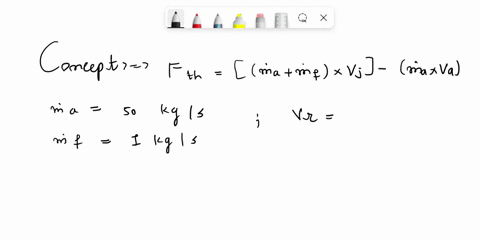 Concept>=> Fth = [(ṁa + ṁf) × Vj] - (ṁa × Va)
ṁa = 50 kg/s ; Vr =
ṁf = 1 kg/s